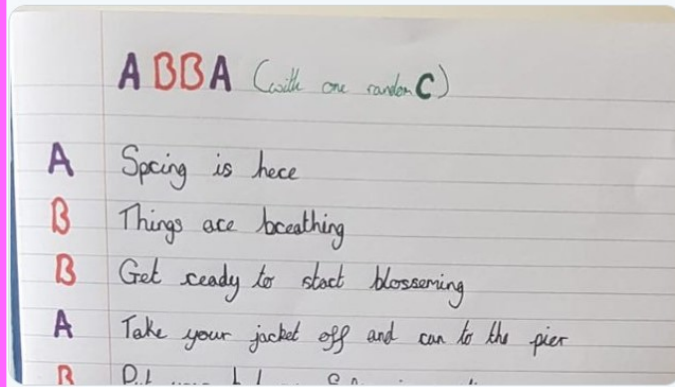 ABBA (with one random C)
A Spring is here
B Things are breathing
B Get ready to start blosseming
A Take your jacket off and run to the pier
B